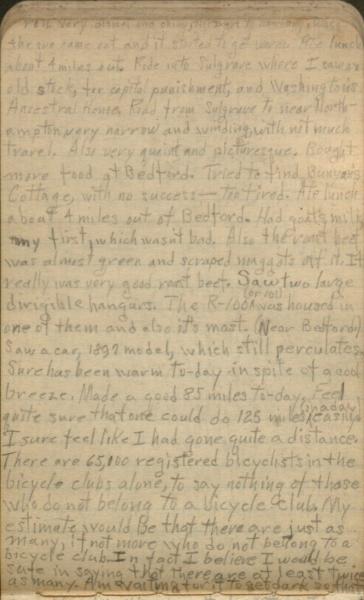 the sun came out and it started to get warm. Ate lunch
about 4 miles out. Rode into Sulgrave where I saw an
old stock, for capitol punishment, and Washington's
Ancestral House. Road from Sulgrave to near North-
ampton very narrow and winding, with not much
travel. Also very quaint and picturesque. Bought
more food at Bedford. Tried to find Bunyan's
Cottage, with no success — Too tired. Ate lunch
about 4 miles out of Bedford. Had goat's milk
my first, which wasn't bad. Also the roast beef
was almost green and scraped maggots off it. It
really was very good roast beef. Saw two large
dirigible hangars. The R-100 (or 101) was housed in
one of them and also it's mast. (Near Bedford)
Saw a car, 1897 model, which still perculates.
Sure has been warm to-day in spite of a good
breeze. Made a good 85 miles to-day. Feel
quite sure that one could do 125 miles (in a day) easily
I sure feel like I had gone quite a distance.
There are 65,000 registered bicyclists in the
bicycle clubs alone, to say nothing of those
who do not belong to a bicycle club. My
estimate would be that there are just as
many, if not more who do not belong to a
bicycle club. In fact I believe I would be
safe in saying that there are at least twice
as many. Am waiting for it to get dark so that